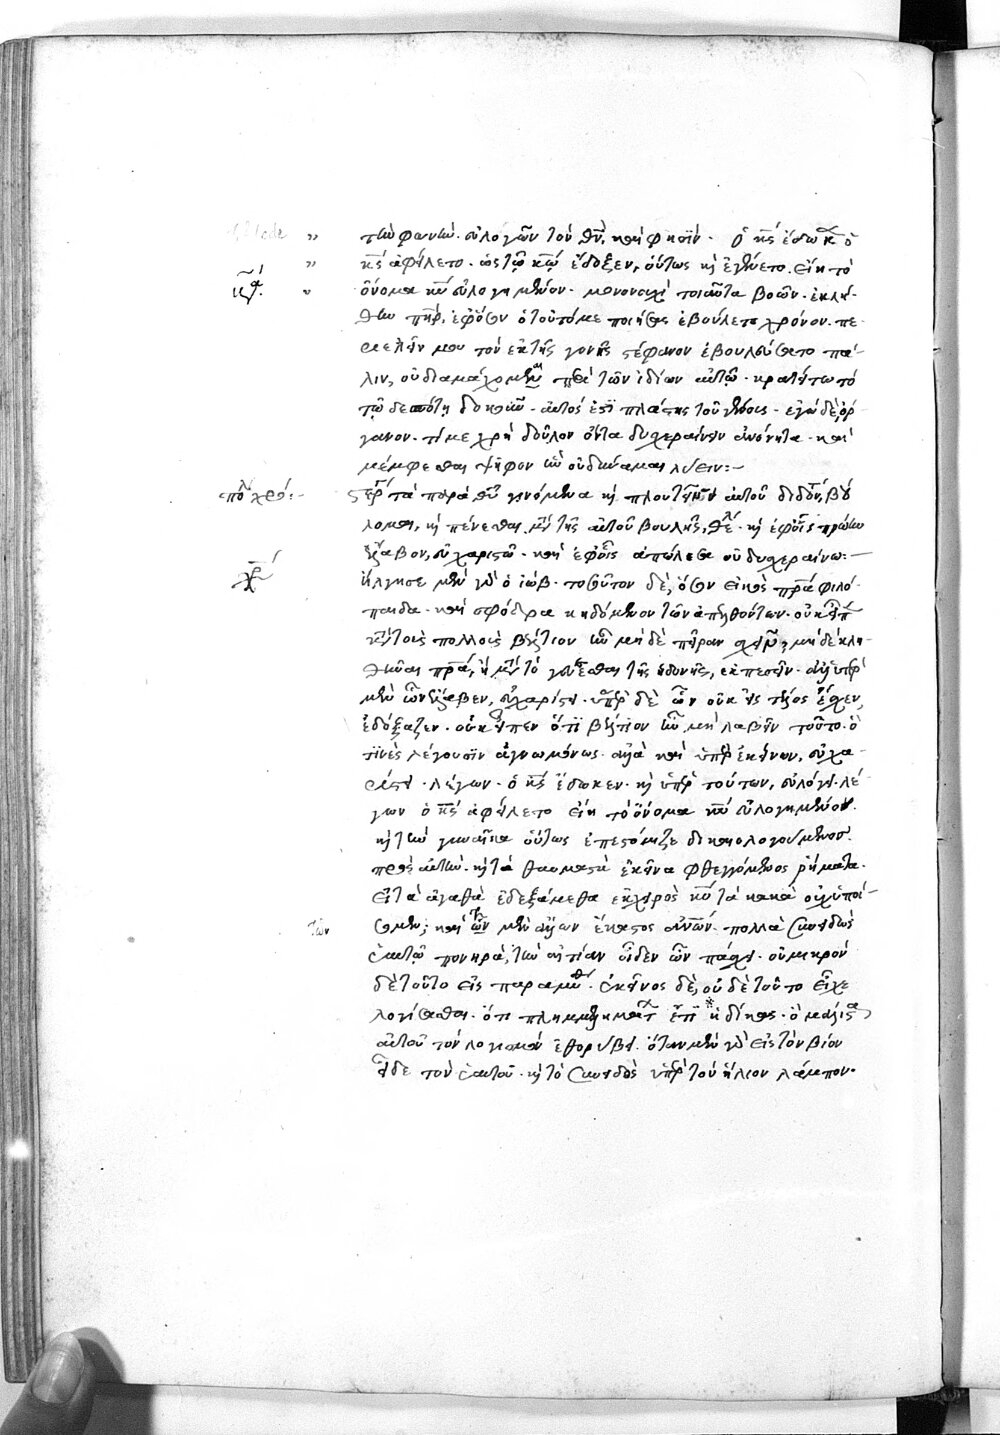 τὴν φωνὴν. εὐλογῶν τὸν θν, καὶ φησὶν. ὁ κς ἔδωκ ὁ
κς ἀφείλετο. ὡς τῶ κω ἔδοξεν, οὕτως κ ἐγένετο. εἴη τὸ
ὄνομα κυ εὐλογημένον. μονονουχὶ τοιαῦτα βοῶν. ἐκλή-
θην πηρ, ἐφ' ὅσον ὁ τοῦτό με ποιήσας ἐβούλετο χρόνον. πε
ριελεῖν μου τὸν ἐκ τῆς γονῆς στέφανον ἐβουλεύσατο πά-
λιν, οὐ διαμάχομαι περὶ τῶν ἰδίων αὐτῶ. κρατείτω τὸ
τῶ δεσπότη δοκοῦν. αὐτός ἐστι πλάστης τοῦ γένους. ἐγὼ δὲ ὄρ
γανον. τί με χρὴ δοῦλον ὄντα δυσχεραίνειν ἀνόνητα. καὶ
μέμφεσθαι ψῆφον ἣν οὐ δύναμαι λύειν:-
στέργω τὰ παρὰ θυ γινόμενα κ πλουτεῖν αὐτοῦ διδόντος, βού
λομαι, κ πένεσθαι μετὰ τῆς αὐτοῦ βουλῆς, θέλω. κ ἐφ' οἷς πρώην
ἔλαβον, εὐχαριστῶ. καὶ ἐφ' οἷς ἀπώλεσα οὐ δυσχεραίνω:-
ἤλγησε μὲν γὰρ ὁ ἰώβ. τοσοῦτον δὲ, ὅσον εἰκὸς πρα φιλό-
παιδα. καὶ σφόδρα κηδόμενον τῶν ἀπελθόντων. οὐκ εἶπε
κατὰ τοὺς πολλοὺς βέλτιον ἦν μηδὲ πεῖραν σχεῖν, μηδὲ κλη-
θῆναι πρα, ἢ μετὰ τὸ γεύσασθαι τῆς ἡδονῆς, ἐκπεσεῖν. ἀλλ' ὑπὲρ
μὲν ὧν ἔλαβεν, εὐχαριστεῖ. ὑπὲρ δὲ ὧν οὐκ εἰς τέλος ἔσχεν,
ἐδόξαζεν. οὐκ εἶπεν ὅτι βέλτιον ἦν μὴ λαβεῖν τοῦτο. ὃ
τινὲς λέγουσιν ἀγνωμόνως. ἀλλὰ καὶ ὑπὲρ ἐκείνων, εὐχα
ριστεῖ. λέγων. ὁ κς ἔδωκεν. κ ὑπὲρ τούτων, εὐλόγει. λέ-
γων ὁ κς ἀφείλετο εἴη τὸ ὄνομα κυ εὐλογημένον.
κ τὴν γυναῖκα οὕτως ἐπεστόμιζε δικαιολογούμενος
πρὸς αὐτὴν. κ τὰ θαυμαστὰ ἐκεῖνα φθεγγόμενος ῥήματα.
εἰ τὰ ἀγαθὰ ἐδεξάμεθα ἐκ χειρὸς κυ τὰ κακὰ οὐχ ὑποί-
σομεν; καὶ ἡμῶν μὲν ἄλλων ἕκαστος ἀνῶν. πολλὰ συνειδὼς
ἑαυτῶ πονηρὰ, τὴν αἰτίαν οἶδεν ὧν πάσχει. οὐ μικρὸν
δὲ τοῦτο εἰς παραμυθίαν. ἐκεῖνος δὲ, οὐδὲ τοῦτο εἶχε
λογίσασθαι. ὅτι πλημμελημάτων ἐστὶ ἡ δίκη. ὃ μάλιστα
αὐτοῦ τὸν λογισμὸν ἐθορύβει. ὅταν μὲν γὰρ εἰς τὸν βίον
εἶδε τὸν ἑαυτοῦ. κ τὸ συνειδὸς ὑπὲρ τὸν ἥλιον λάμπον.